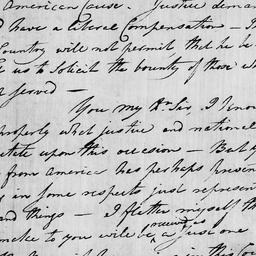 American cause. Justice deman
d have a liberal Compensation — I
Country will not permit that he be
us to Solicit the bounty of those w
served —
You my Dr. Sir, I know
properly what justice and national
upon this occasion — But
from america has perhaps
in some respects just represen
and things — I flatter myself th
make to you will be received a Just one
in this Co